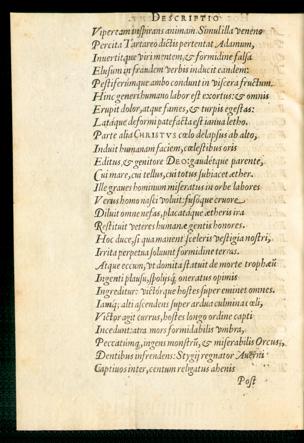 DESCRIPTIO
Vipeream inspirans animam. Simul illa veneno
Percita Tartareo dictis pertentat Adamum,
Invertitque viri mentem, & formidine falsa
Elusum in fraudem verbis inducit eandem:
Pestiferumque ambo condunt in viscera fructum.
Hinc generi humano labor est exortus: & omnis
Erupit dolor, atque fames, & turpis egestas:
Lataque deformi patefacta est ianua letho.
Parte alia CHRISTVS cœlo delapsus ab alto,
Induit humanam faciem, cœlestibus oris
Editus, & genitore DEO: gaudetque parente,
Cui mare, cui tellus, cui totus subiacet æther.
Ille graves hominum miseratus in orbe labores
Verus homo nasci voluit: fusoque cruore
Diluit omne nefas, placataque ætheris ira
Restituit veteres humanæ gentis honores.
Hoc duce, si qua manent sceleris vestigia nostri,
Irrita perpetua solvunt formidine terras.
Atque eccum, ut domita statuit de morte trophæū
Ingenti plausu, spolijsq́; oneratus opimis
Ingreditur: victorque hostes super eminet omnes.
Iamq́; alti ascendens super ardua culmina cœli,
Victor agit currus, hostes longo ordine capti
Incedunt: atra mors formidabilis vmbra,
Peccatumq́;, ingens monstrū, & miserabilis Orcus,
Dentibus infrendens: Stygij regnator Averni
Captivos inter, centum religatus ahenis
Post